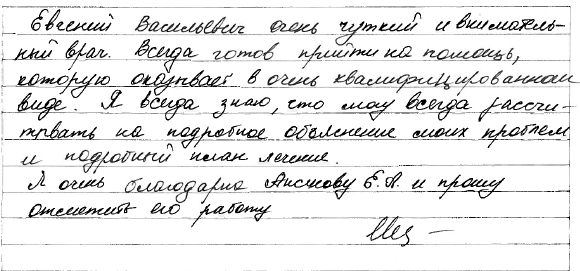 Евгений Васильевич очень чуткий и вниматель-
ный врач. Всегда готов прийти на помощь,
которую оказывает в очень квалифицированном
виде. Я всегда знаю, что могу всегда рассчи-
тывать на подробное объяснение моих проблем
и подробный план лечения.
Я очень благодарна Е. А. и прошу
отметить его работу